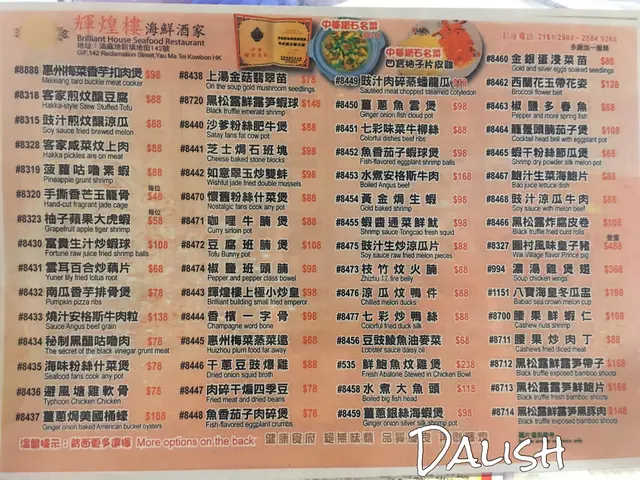 輝煌樓 海鮮酒家
Brilliant House Seafood Restaurant
地址：油麻地新填地街142號
G/F,142 Reclamation Street,Yau Ma Tei Kowloon HK
中華鑽石名菜
中華鑽石名菜
四寶柚子片皮雞
訂座電話 2151 2986 - 2884 9268
多謝加一服務
#8888 惠州梅菜香芋扣肉煲 $98
Meixiang taro bucket money
#8318 客家煎炆釀豆腐 $88
Hakka-style Stew Stuffed Tofu
#8315 豉汁煎炆釀涼瓜 $88
Soy sauce fried brewed melon
#8328 客家咸菜炆上肉 $88
Hakka pickles are on meat
#8319 菠蘿咕嚕素蝦 $88
Pineapple grunt shrimp
#8320 手撕香芒玉龍卷 每位 $48
Hand-cut fragrant jade cage
#8323 柚子蘋果大虎蝦 每位 $58
Grapefruit apple tiger shrimp
#8430 富貴生汁炒蝦球 $108
Fortune raw juice fried shrimp balls
#8431 雲耳百合炒藕片 $68
Pruner lily fried lotus root
#8432 南瓜香芋排骨煲 $78
Pumpkin pizza ribs
#8433 燒汁安格斯牛肉粒 $138
Sauce Angus beef grain
#8434 秘制黑醋咕嚕肉 $78
The secret of the black vinegar grunt meat
#8435 海味粉絲什菜煲 $78
Seafood fans cook any pot
#8436 避風塘雞軟骨 $78
Typhoon Chicken Chicken
#8437 薑蔥焗美國桶蠔 $188
Ginger onion baked American bucket oysters
#8438 上湯金菇翡翠苗 $78
On the soup gold mushroom seedlings
#8720 黑松露鮮露筍蝦球 $148
Black truffle emerald shrimp
#8440 沙爹粉絲肥牛煲 $88
Satay fans fat cow pot
#8441 芝士焗石班塊 $98
Cheese baked stone blocks
#8442 如意翠玉炒雙蚌 $98
Wishful jade fried double mussels
#8470 懷舊粉絲什菜煲 $88
Nostalgic fans cook any pot
#8471 咖喱牛腩煲 $88
Curry sirloin pot
#8472 豆腐班腩煲 $108
Tofu Bunny pot
#8474 椒鹽班頭腩 $98
Pepper and pepper class bowel
#8443 輝煌樓上極小炒皇 $98
Brilliant building small fried emperor
#8444 香檳一字骨 $98
Champagne word bone
#8445 惠州梅菜蒸菜遠 $68
Huizhou plum food far away
#8446 干蔥豆豉雞煲 $88
Dried onion squid broth
#8447 肉碎干煸四季豆 $78
Fried meat and dried beans
#8448 魚香茄子肉碎煲 $78
Fish-flavored eggplant crumbs
#8449 豉汁肉碎蒸蟠龍瓜 $98
Sauteed meat chopped steamed cotyledon
#8450 薑蔥魚雲煲 $98
Ginger onion fish cloud pot
#8451 七彩味菜牛柳絲 $88
Colorful dishes beef ribs
#8452 魚香茄子蝦球煲 $98
Fish-flavored eggplant shrimp balls
#8453 水煮安格斯牛肉 $168
Boiled Angus beef
#8454 黃金焗生蝦 $98
Gold baked shrimp
#8455 蝦醬通菜鮮魷 $98
Shrimp sauce Tongcao fresh squid
#8475 豉汁生炒涼瓜片 $88
Soy sauce fried slices of melon
#8473 枝竹炆火腩 $88
Zhizhu 炆 fire belly
#8476 涼瓜炆鴨件 $88
Chilled melon ducks
#8477 七彩炒鴨絲 $88
Colorful fried duck silk
#8456 豆豉鯪魚油麥菜 $68
Lobster sauce daisy oil
#535 鮮鮑魚炆雞煲 $238
Fresh Abalone Stewed in Chicken Bowl
#8458 水煮大魚頭 $118
Boiled big fish head
#8459 薑蔥銀絲海蝦煲 $98
Ginger onion silver silk shrimp pot
#8460 金銀蛋浸菜苗 $88
Gold and silver eggs soaked seedlings
#8462 西蘭花玉帶花姿 $128
Broccoli flower belt
#8463 椒鹽多春魚 $88
Pepper and more spring fish
#8464 雞蔓頭腩茄子煲 $108
Cocktail head bell with eggplant pot
#8465 蝦干粉絲節瓜煲 $66
Shrimp dry powder silk melon pot
#8467 鮑汁生菜海鮑片 $88
Bao juice lettuce dish
#8468 豉汁涼瓜牛肉 $88
Soy sauce with melon beef
#8446 黑松露炸腐皮卷 $108
Black truffle fried curd rolls
#8327 圍村風味皇子豬 全隻 $488
Wai Village flavor Prince pig
#994 濃湯雞煲翅 $368
Soup chicken wings
#1151 八寶海皇冬瓜盅 $198
Babao sea crown melon cup
#8700 腰果鮮蝦仁 $108
Cashew nuts shrimp
#8711 腰果炒肉丁 $88
Cashews fried diced meat
#8712 黑松露鮮露筍鮮帶子 $168
Black truffle fresh bamboo shoots
#8713 黑松露鮮露筍鮮鮑片 $168
Black truffle fresh bamboo shoots
#8714 黑松露鮮露筍黑豚肉 $148
Black truffle exposed bamboo shoots
溫馨提示：敬西更多選擇 More options on the back
健康食府 絕無味精
DALISH